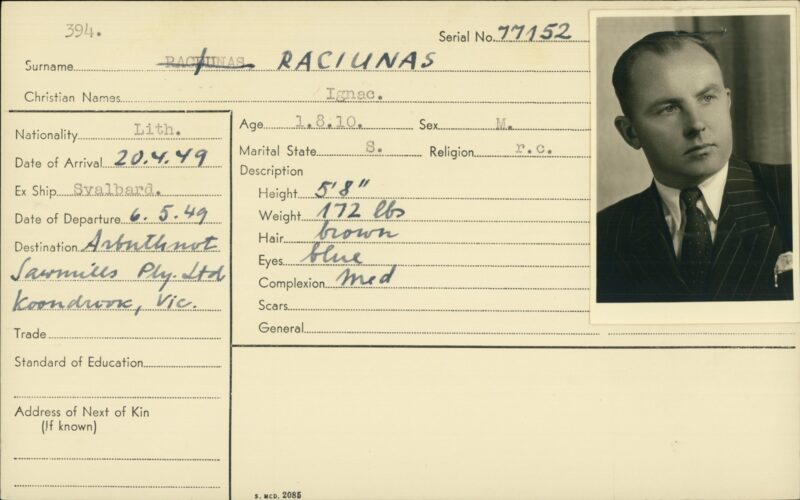 394.
Serial No. 77152
Surname RACIUNAS
Christian Names Ignac.
Nationality Lith.
Date of Arrival 20.4.49
Ex Ship Svalbard.
Date of Departure 6.5.49
Destination Arbuthnot
Sawmills Pty. Ltd
Koondrook, Vic.
Trade
Standard of Education
Address of Next of Kin
(If known)
Age 1.8.10. Sex M.
Marital State S. Religion r.c.
Description
Height 5'8"
Weight 172 lbs
Hair brown
Eyes blue
Complexion Med
Scars
General
S. MCD. 2085